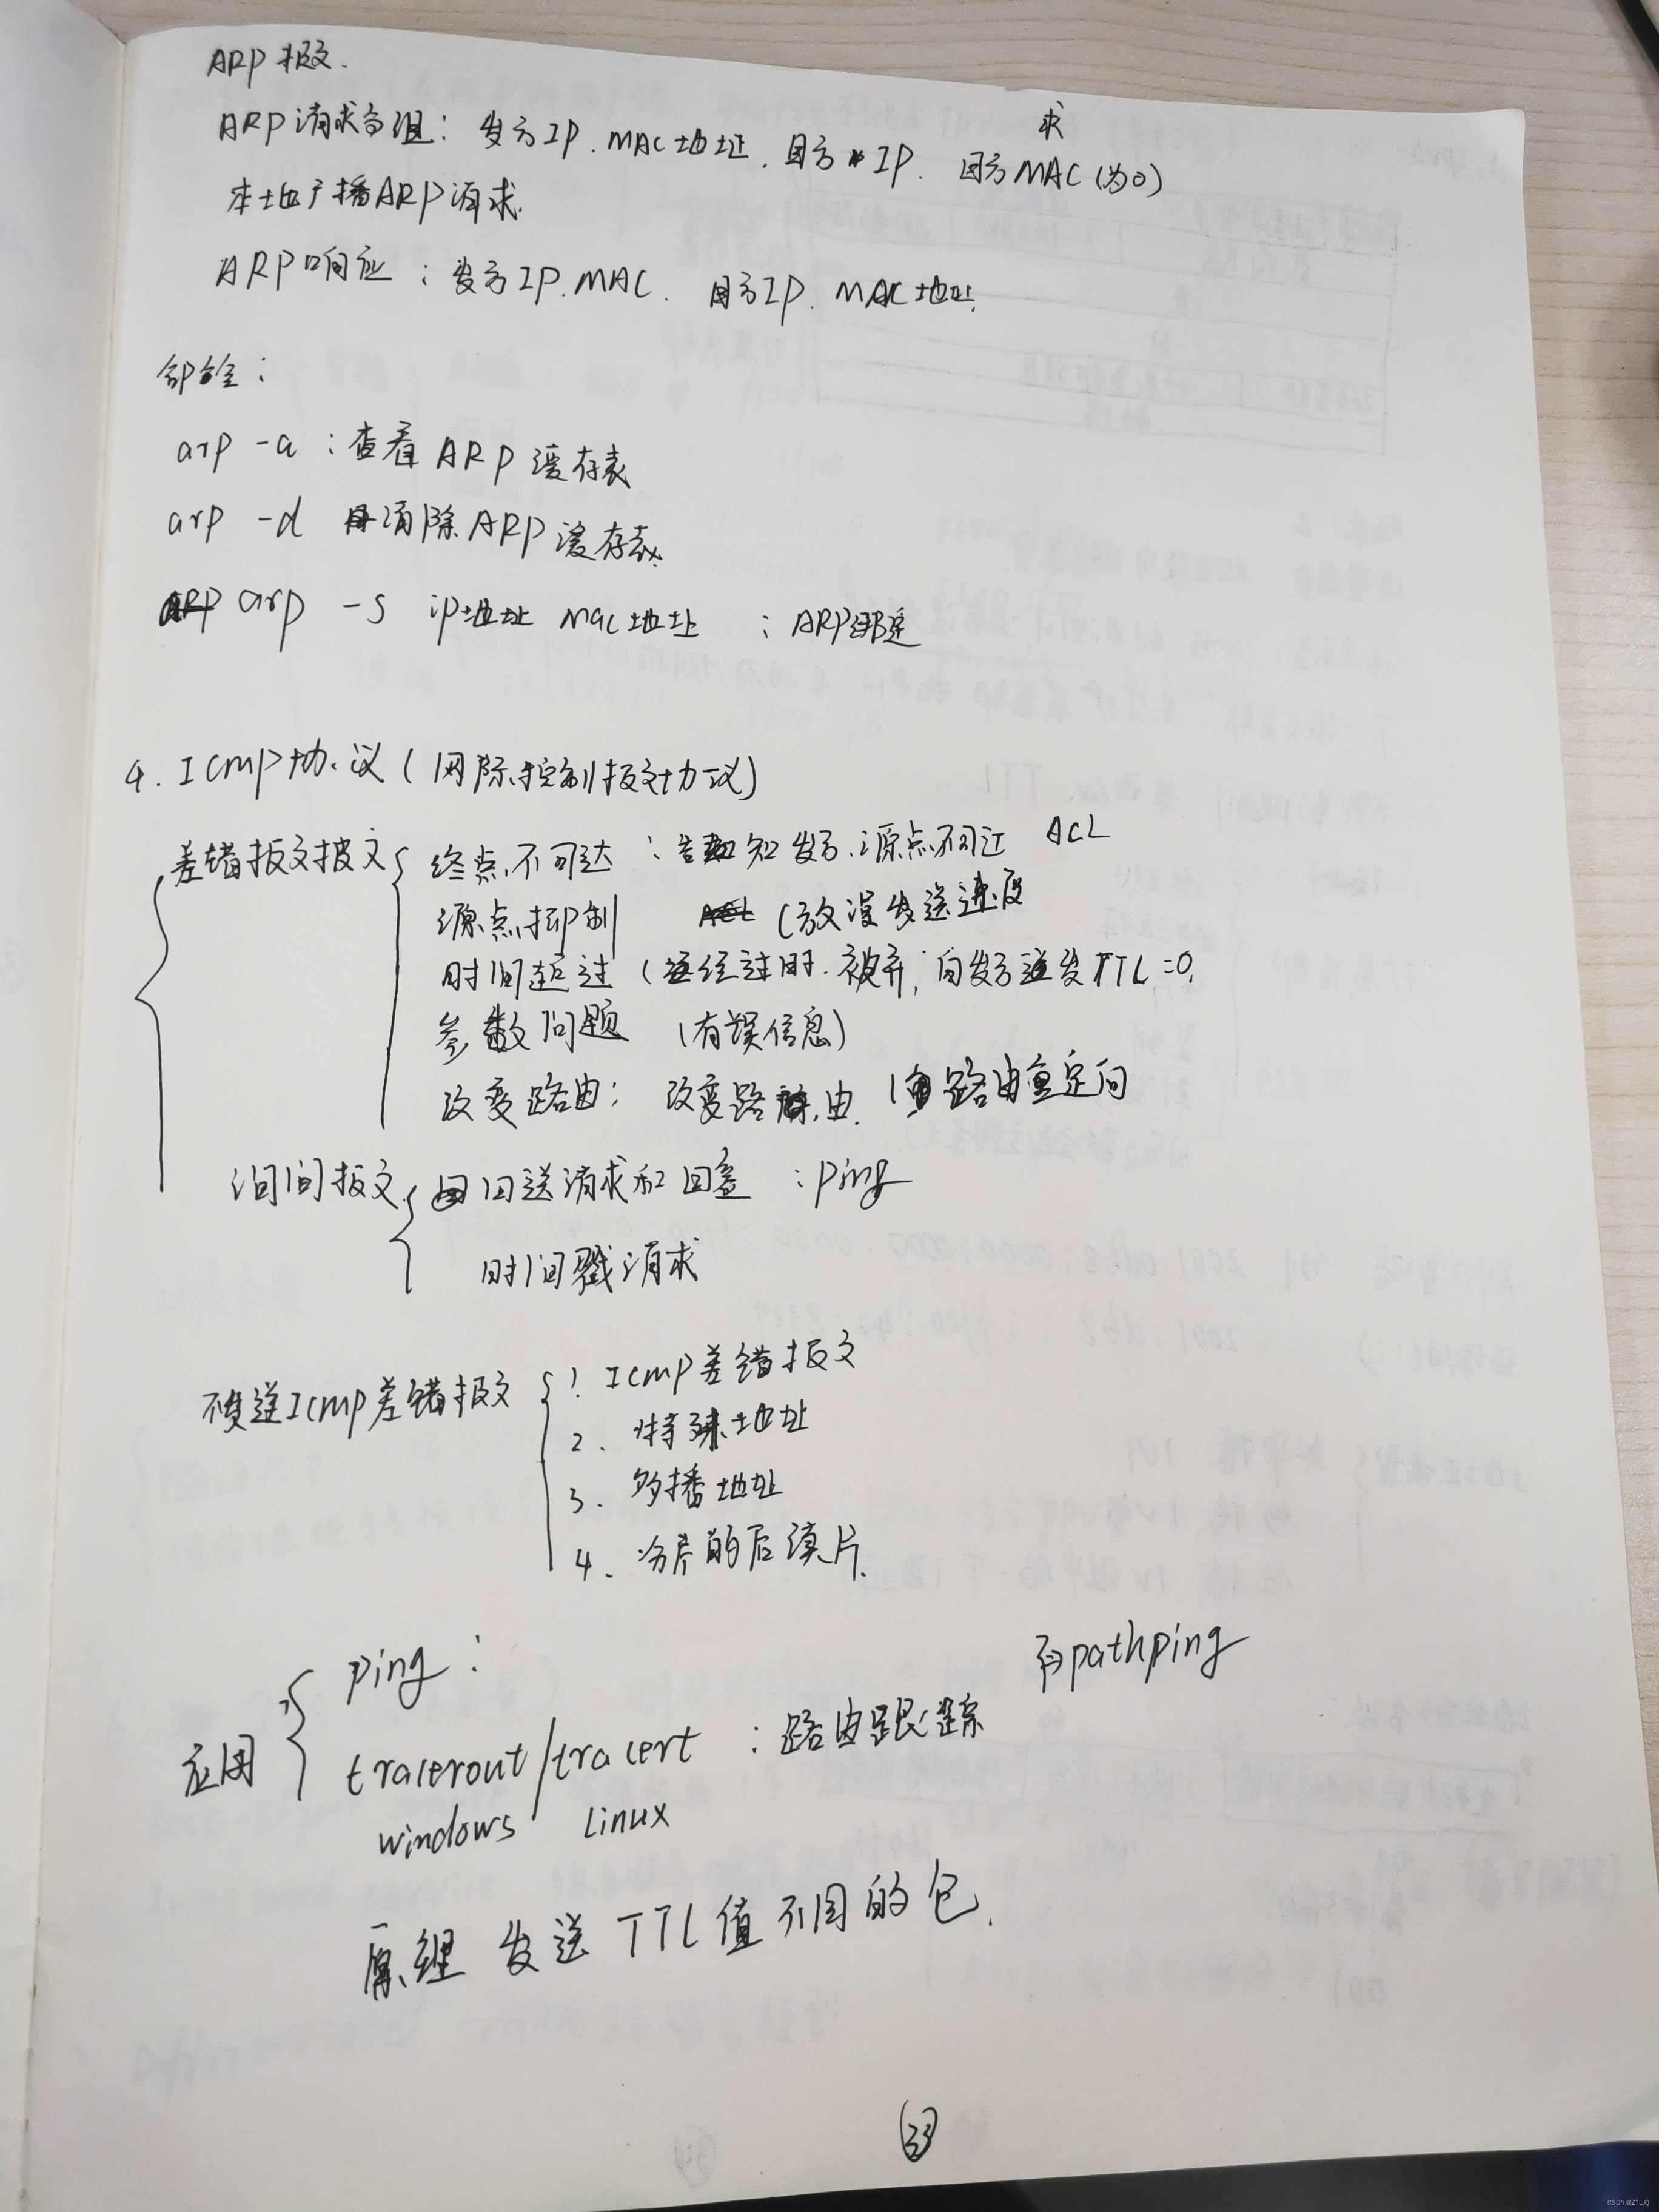 ARP报文.
求
ARP请求分组: 发方IP. MAC地址. 目方IP. 目方MAC(为0)
本地广播ARP请求.
ARP响应: 发方IP. MAC. 目方IP. MAC地址.
命令:
arp -a : 查看ARP缓存表
arp -d 清除ARP缓存表.
arp -s ip地址 mac地址 : ARP绑定
4. ICMP协议(网际控制报文协议)
差错报文报文
终点不可达 : 告知发方.源点不可达 ACL
源点抑制 (放慢发送速度
时间超过 (经过时.被弃; 向发方发TTL=0.
参数问题 (有误信息)
改变路由: 改变路由. (路由重定向
询问报文
回送请求和回答 : ping
时间戳请求
不发送ICMP差错报文
1. ICMP差错报文
2. 特殊地址
3. 多播地址
4. 分片的后续片.
应用
ping :
pathping
tracerout/tracert : 路由跟踪
windows linux
原理 发送TTL值不同的包.
33
CSDN @ZTLJQ